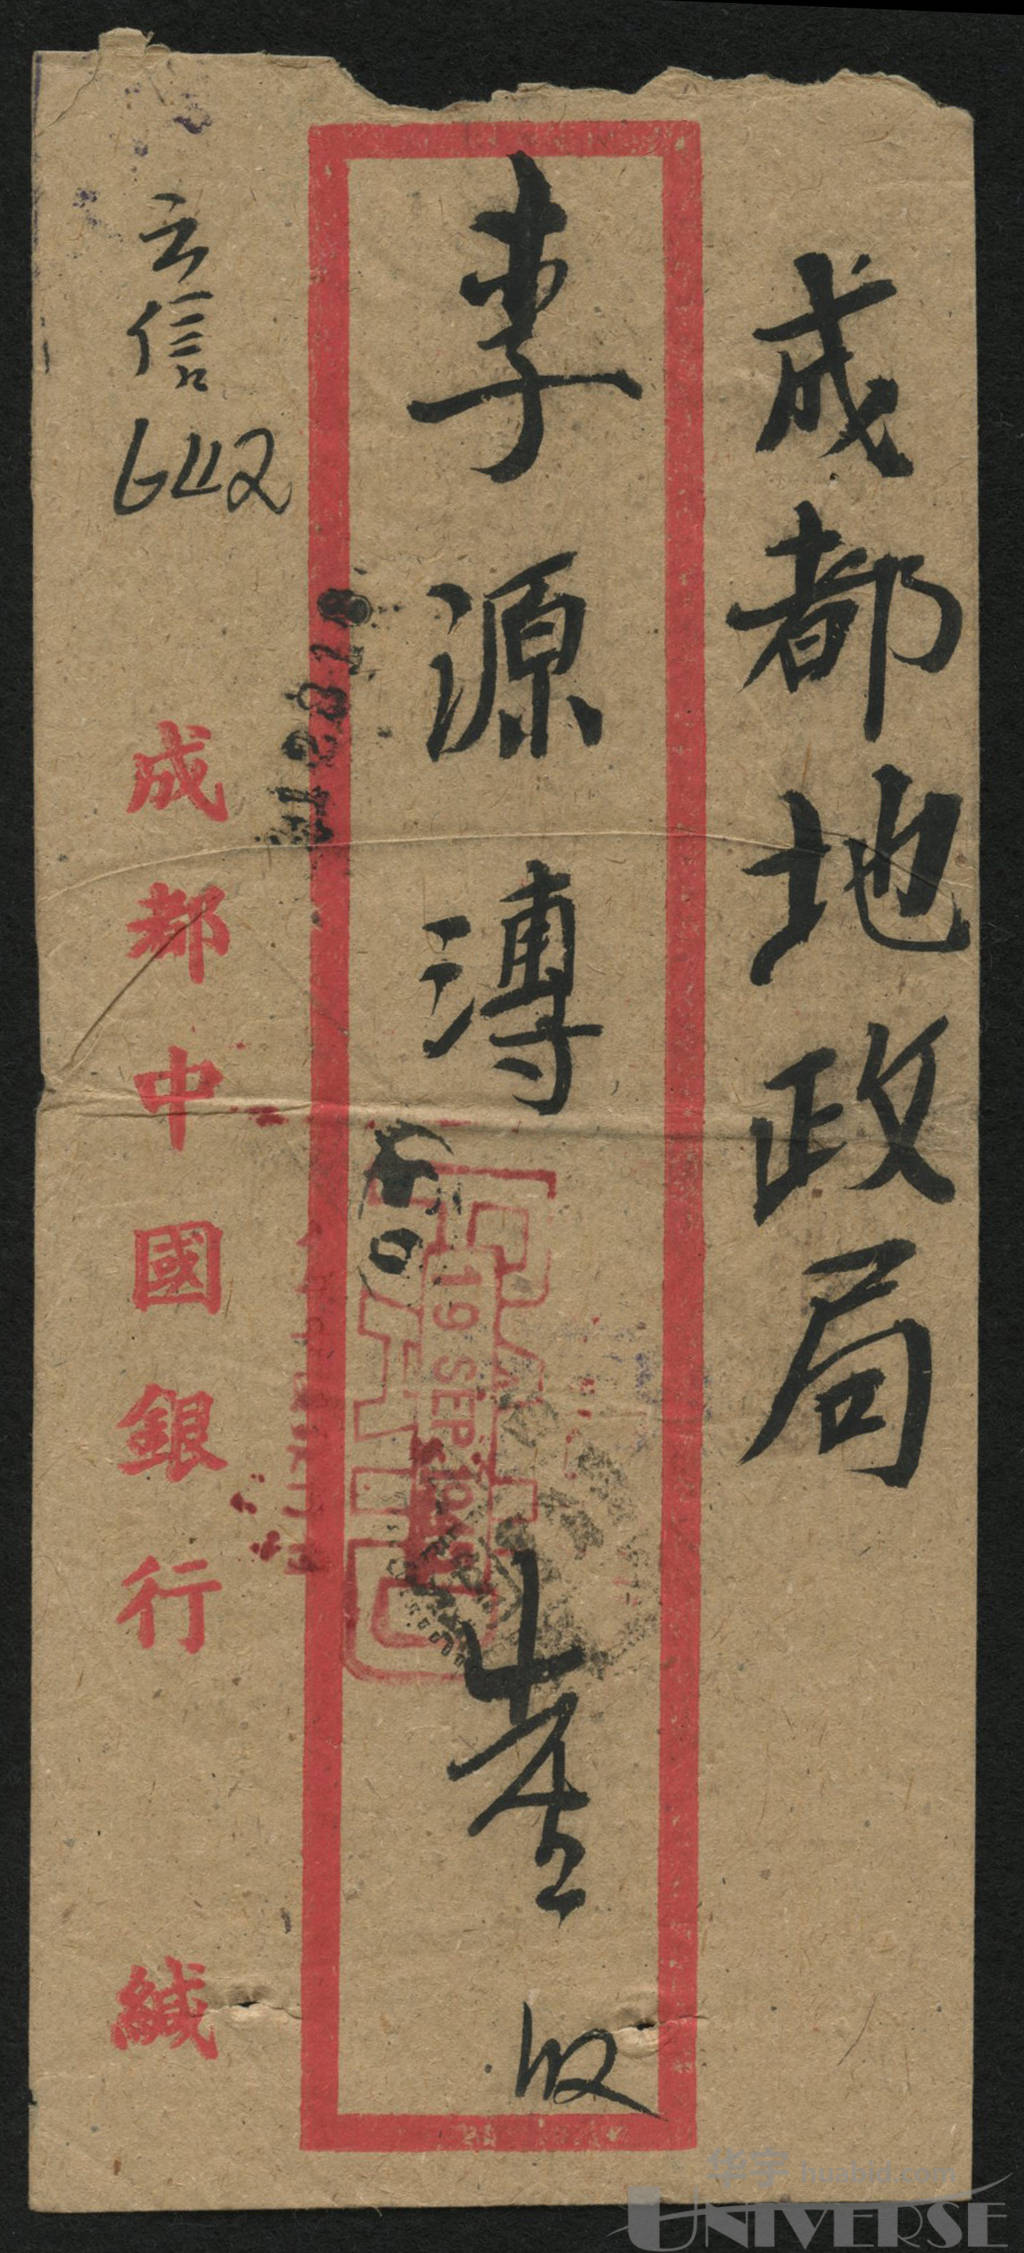 成都地政局
李源溥 收
云信
642
成都中國銀行 緘
112818
19 SEP 194
华宇 huabid.com
UNIVERSE